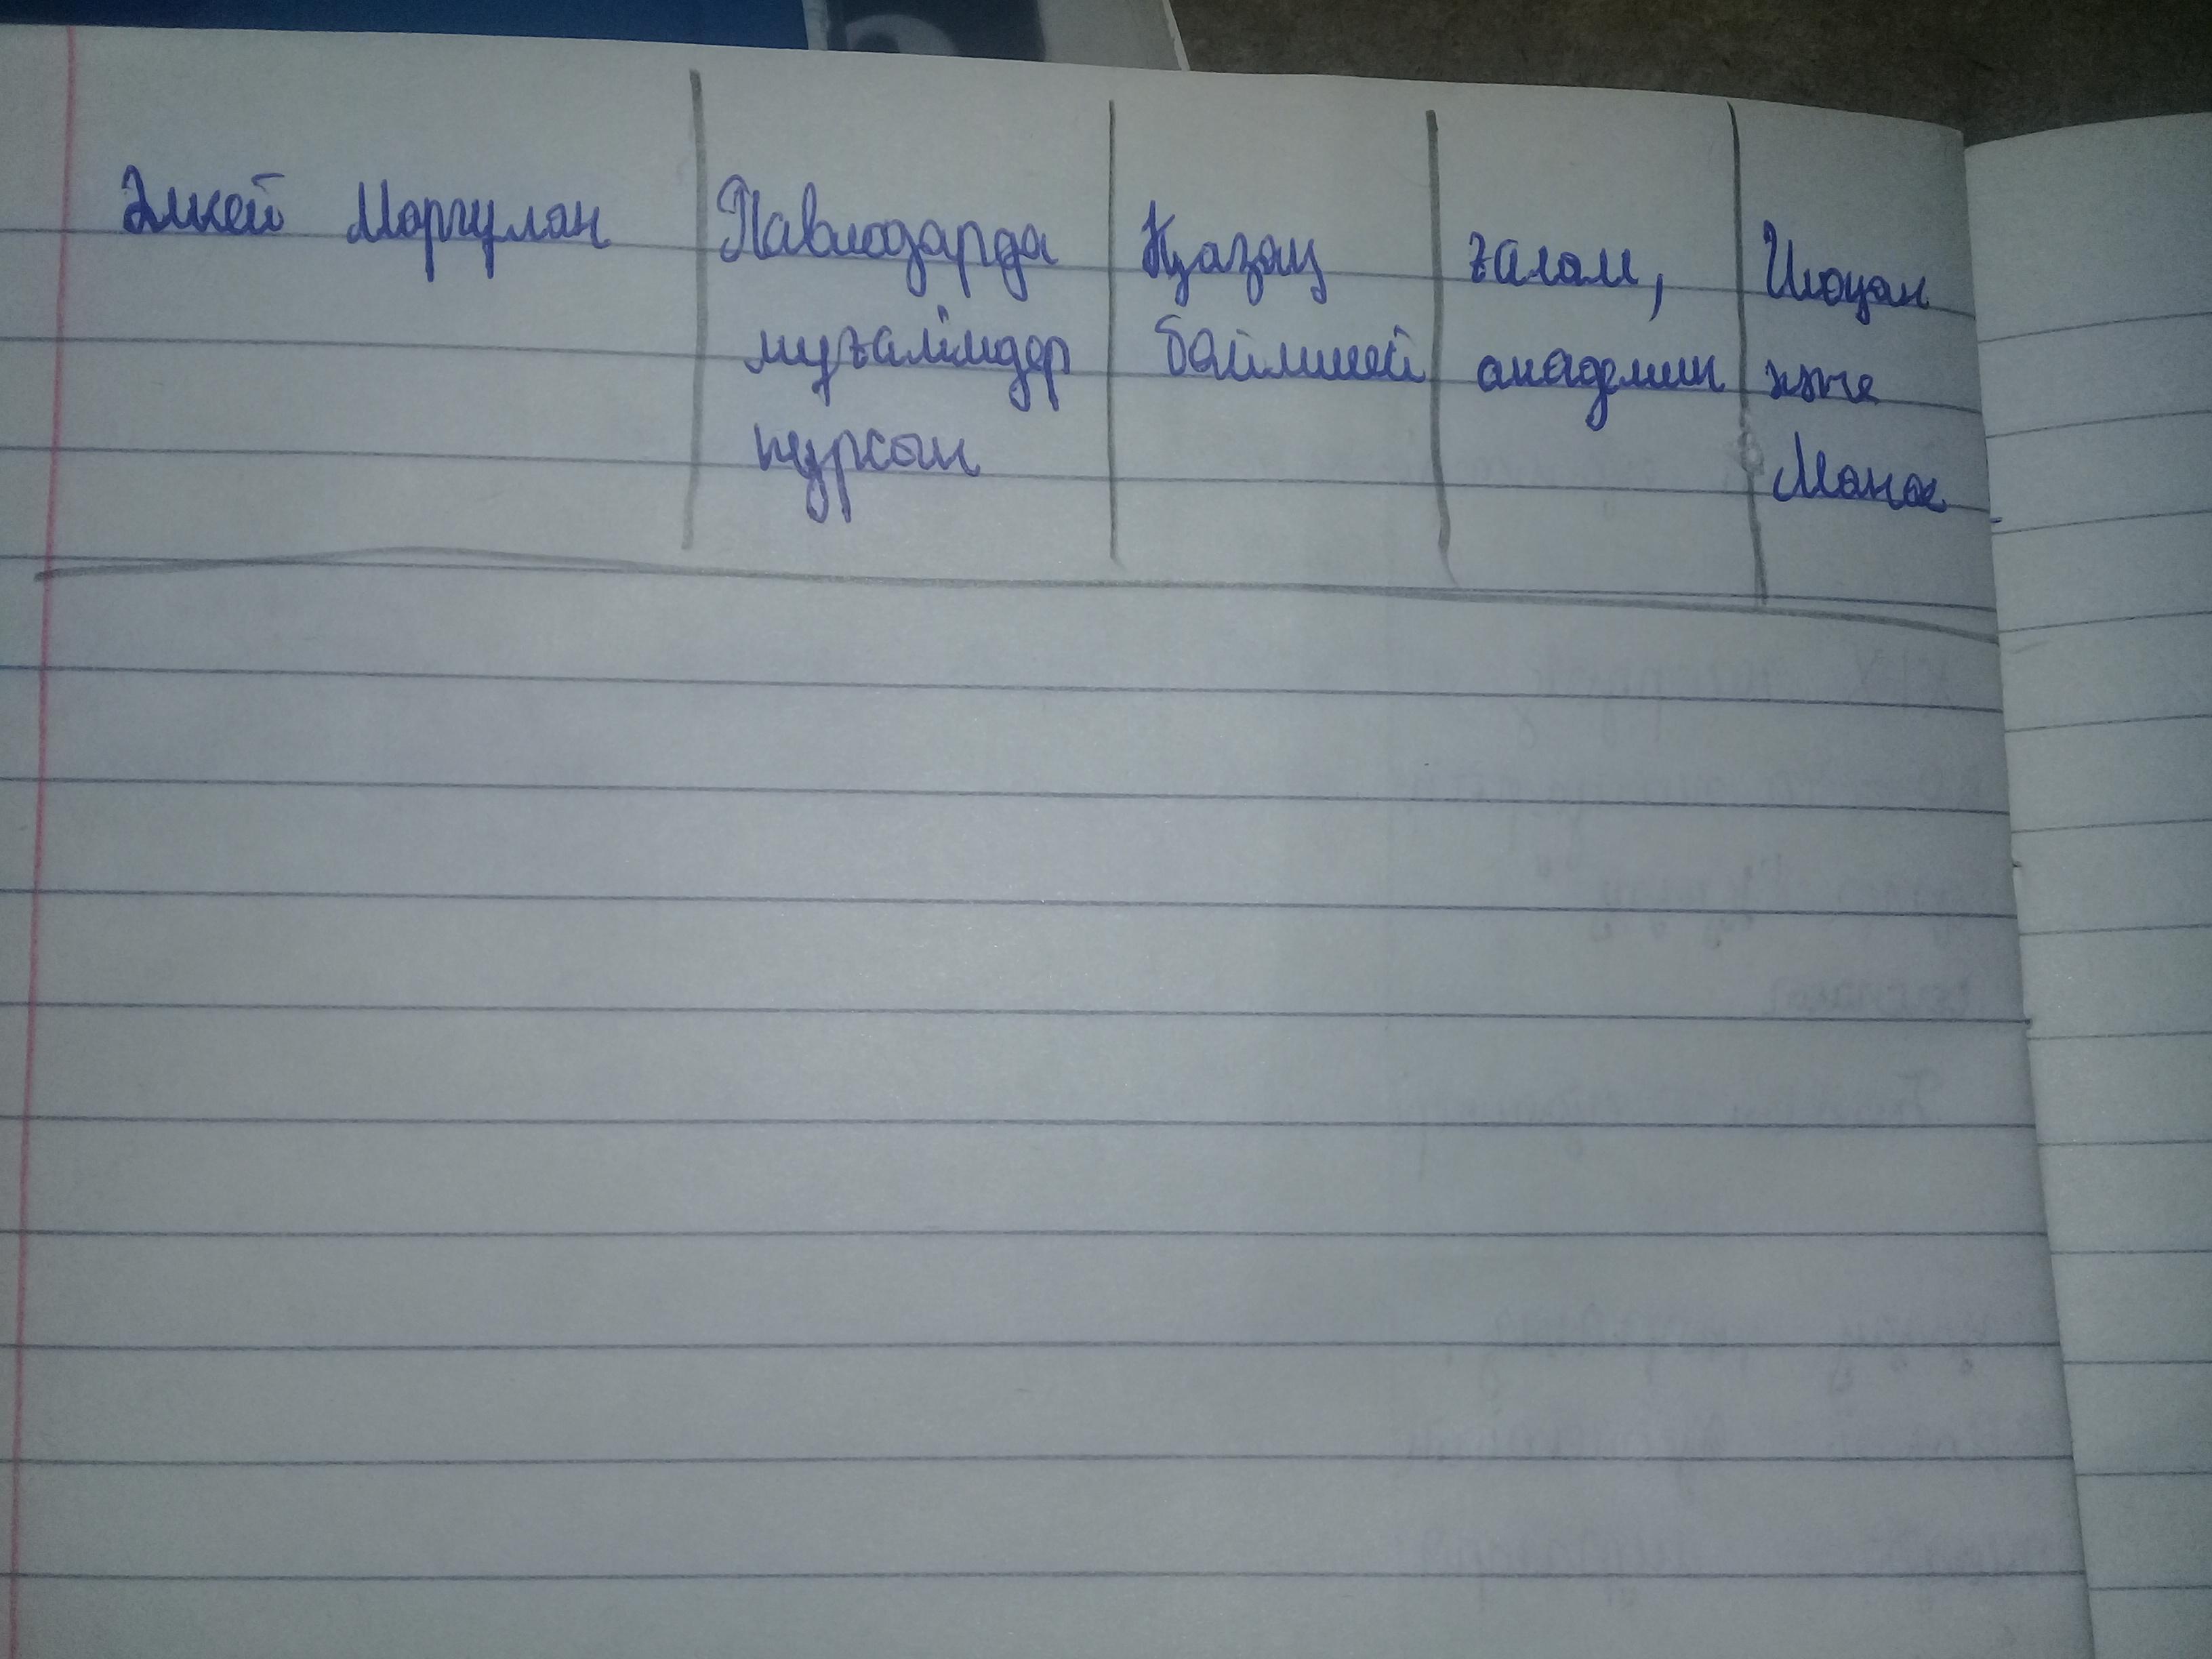 Әлкей Марғулан
Павлодарда
мұғалімдер
курсын
Қазақ
бөлімшей
ғалам,
академик
Шоқан
және
Манас